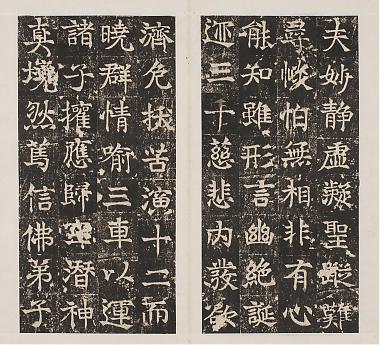 夫妙静虚凝聖蹤難
尋惔怕無相非有心
能知雖形言幽絶誕
迹三千慈悲内發欲
濟危拔苦演十二而
曉群情喻三車以運
諸子攉應歸潛神
真境然篤信佛弟子